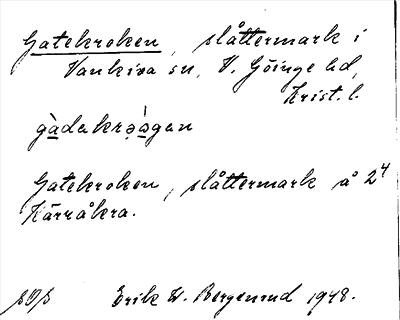 Gatekroken, slåttermark i
Vankiva sn, V. Göinge hd,
Krist. l.
gàdakrə̀ågan
Gatekroken, slåttermark å 2⁴
Kärråkra.
Erik W. Bergemud 1948.